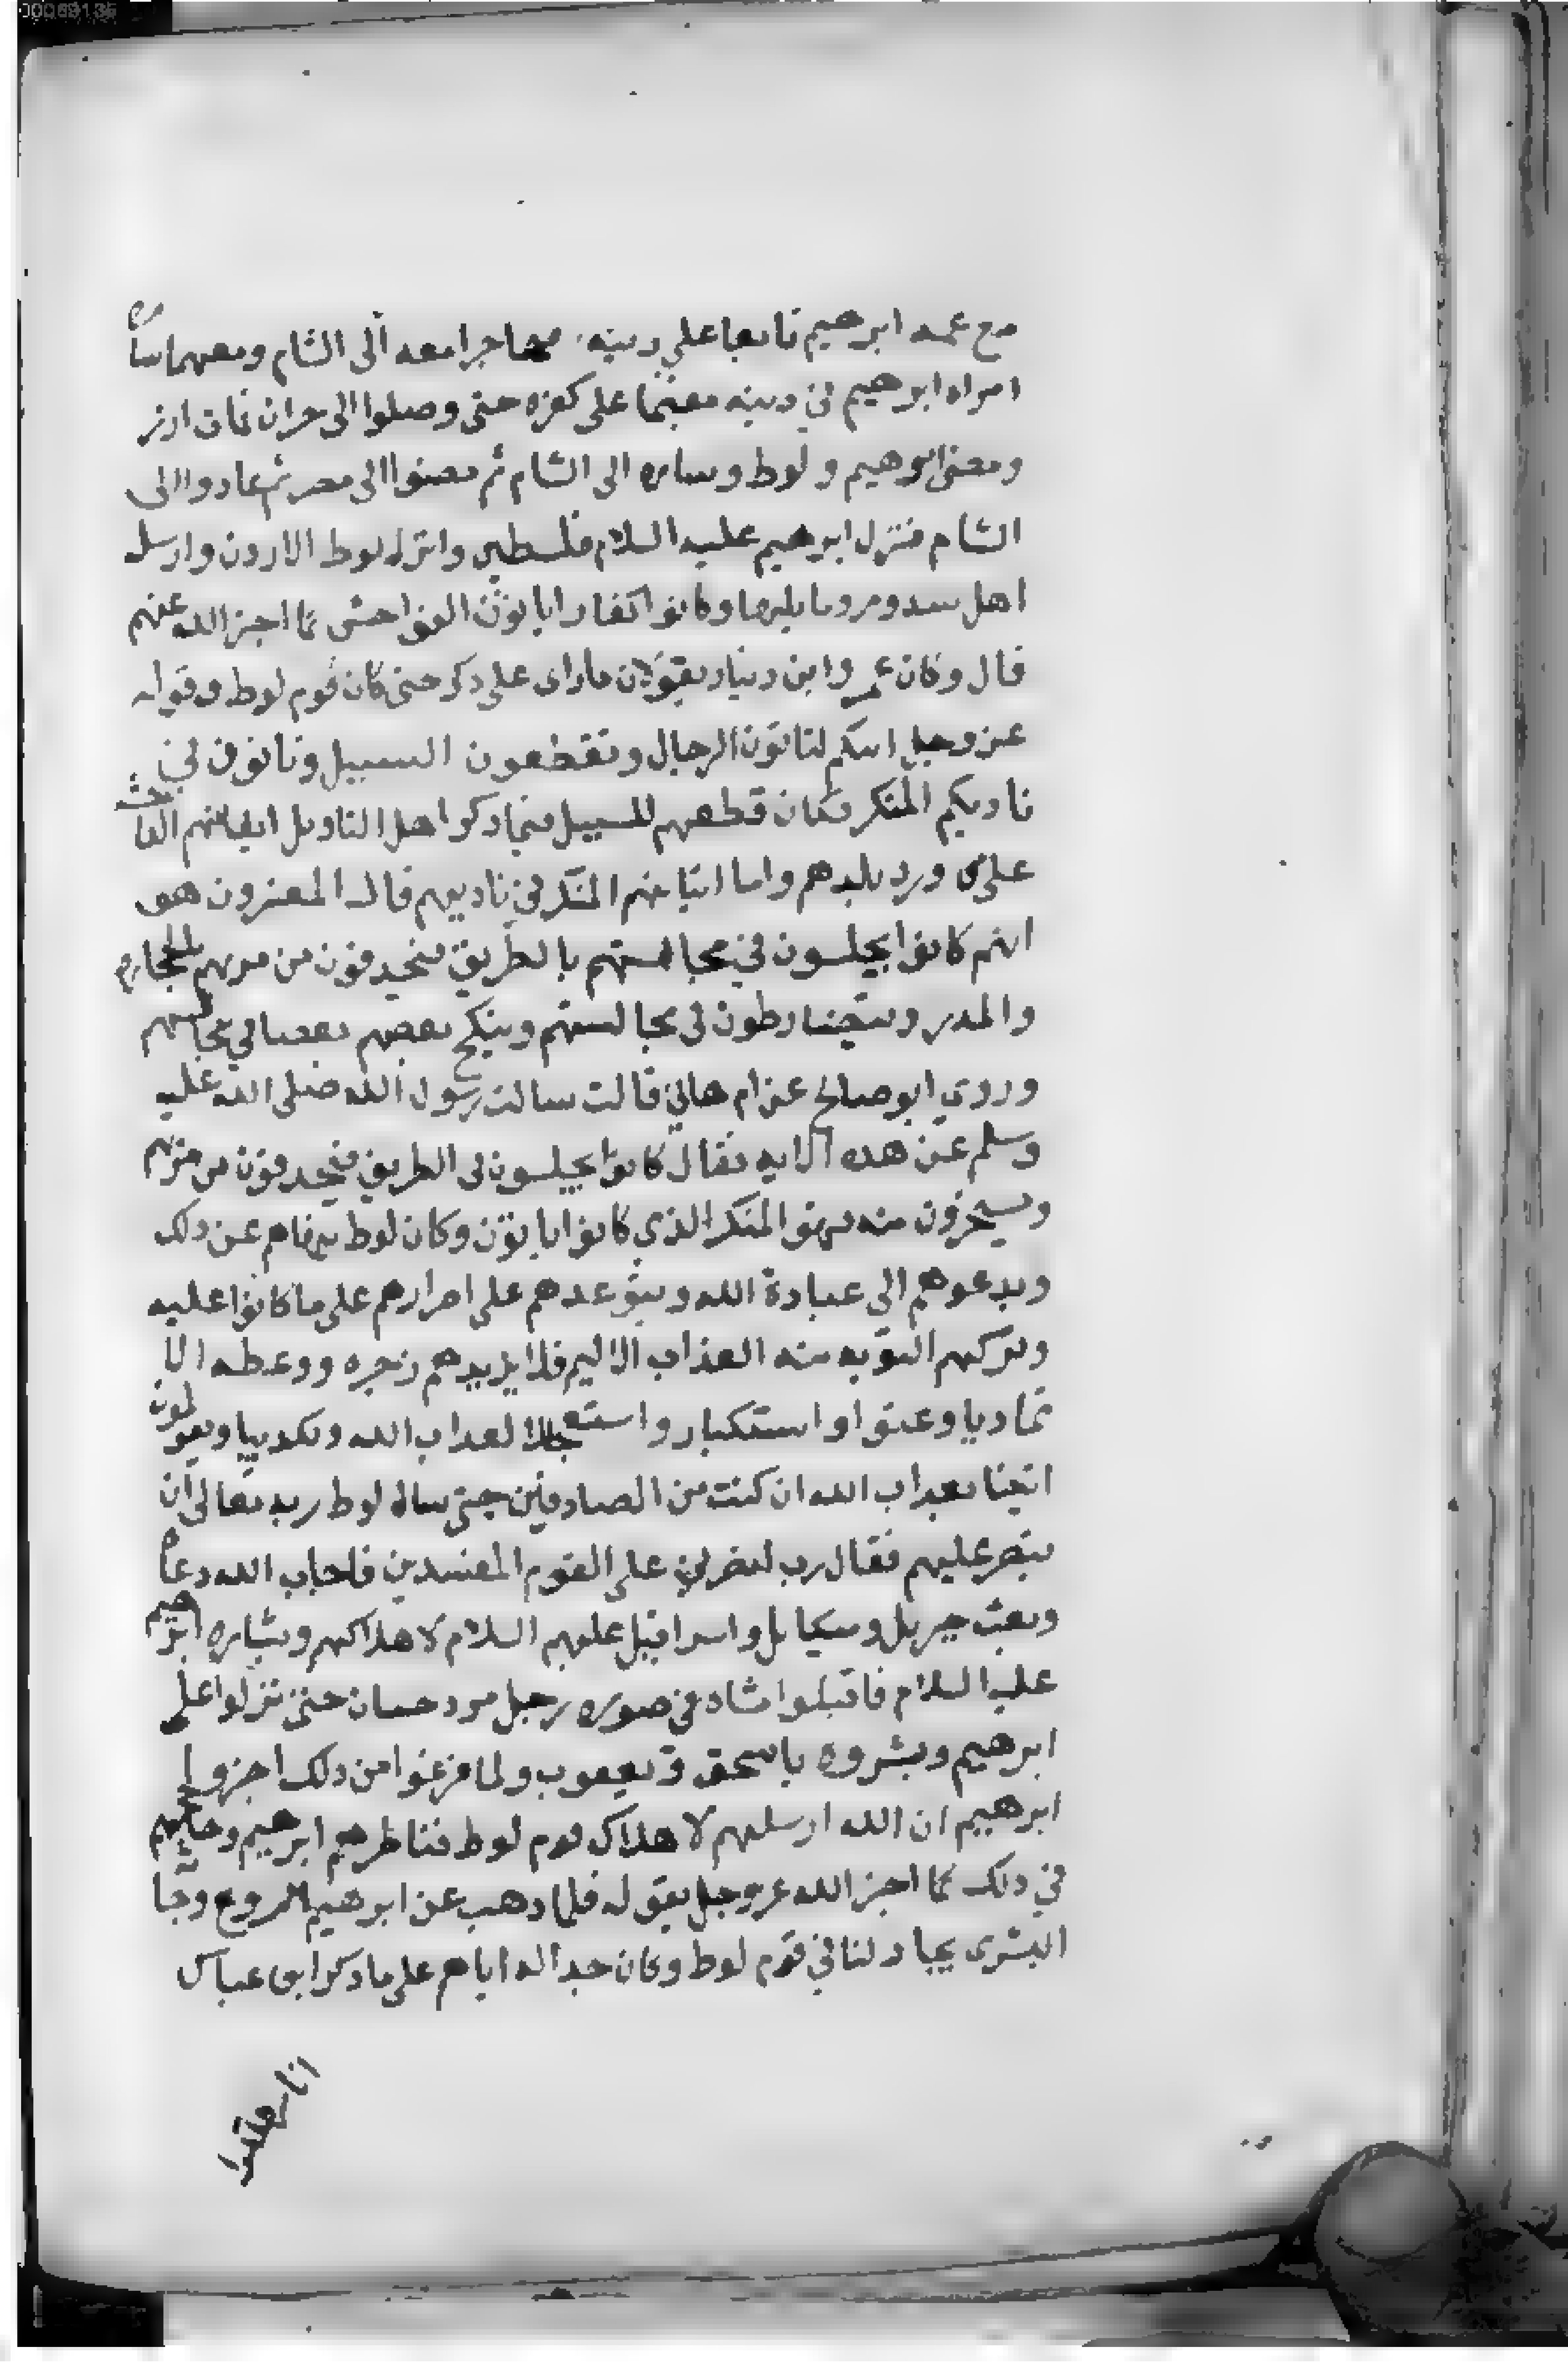 مع عمه ابرهيم تابعا علي دينه مهاجرا معه الى الشام ومعهما ساره
امراه ابرهيم في دينه مقيما على كفره حتى وصلوا الى حران فمات ازر
ومضى ابرهيم ولوط وساره الى الشام ثم مضوا الى مصر ثم عادوا الى
الشام فنزل ابرهيم عليه السلام فلسطين وانزل لوط الاردن وارسل
اهل سدوم وما يليها وكانوا كفارا ياتون الفواحش كما اخبر الله عنهم
قال وكان عمرو ابن دينار يقولان ما راى على ذكر حتى كان قوم لوط وقوله
عز وجل اينكم لتاتون الرجال وتقطعون السبيل وتاتون في
ناديكم المنكر فكان قطعهم للسبيل فيما ذكر اهل التاويل اتيانهم الفاحشه
على من ورد بلدهم واما اتيانهم المنكر في ناديهم قال المفسرون هو
انهم كانوا يجلسون في مجالستهم بالطريق فيخدفون من مر بهم بالحجاره
والمدر ويتضارطون في مجالستهم وينكح بعضهم بعضا في مجالسهم
وروي ابو صالح عن ام هاني قالت سالت رسول الله صلى الله عليه
وسلم عن هده الايه فقال كانوا يجلسون في الطريق فيخدفون من مر بهم
ويسخرون منه فهو المنكر الذي كانوا ياتون وكان لوط ينهاهم عن دلك
ويدعوهم الي عبادة الله ويتوعدهم على اصرارهم على ما كانوا عليه
وتركهم التوبه منه العذاب الاليم فلا يزيدهم زجره ووعظه الا
تماديا وعتوا واستكبار واستعجالا لعداب الله وتكديبا ويقولون
اتينا بعداب الله ان كنت من الصادقين حتى سال لوط ربه تعالى ان
ينصر عليهم فقال رب انصرني على القوم المفسدين فاجاب الله دعاه
وبعث جبريل وميكايل واسرافيل عليهم السلام لاهلاكهم وبشاره ابرهيم
عليه السلام فاقبلوا مشاه في صوره رجل مرد حسان حتى نزلوا على
ابرهيم وبشروه باسحق ويعقوب ولما فرغوا من دلك اخبروا
ابرهيم ان الله ارسلهم لاهلاك قوم لوط فناظرهم ابرهيم وحاجهم
في دلك كما اخبر الله عز وجل بقوله فلما دهب عن ابرهيم الروع وجا
البشرى يجادلنا في قوم لوط وكان جداله اياهم على ما دكر ابن عباس